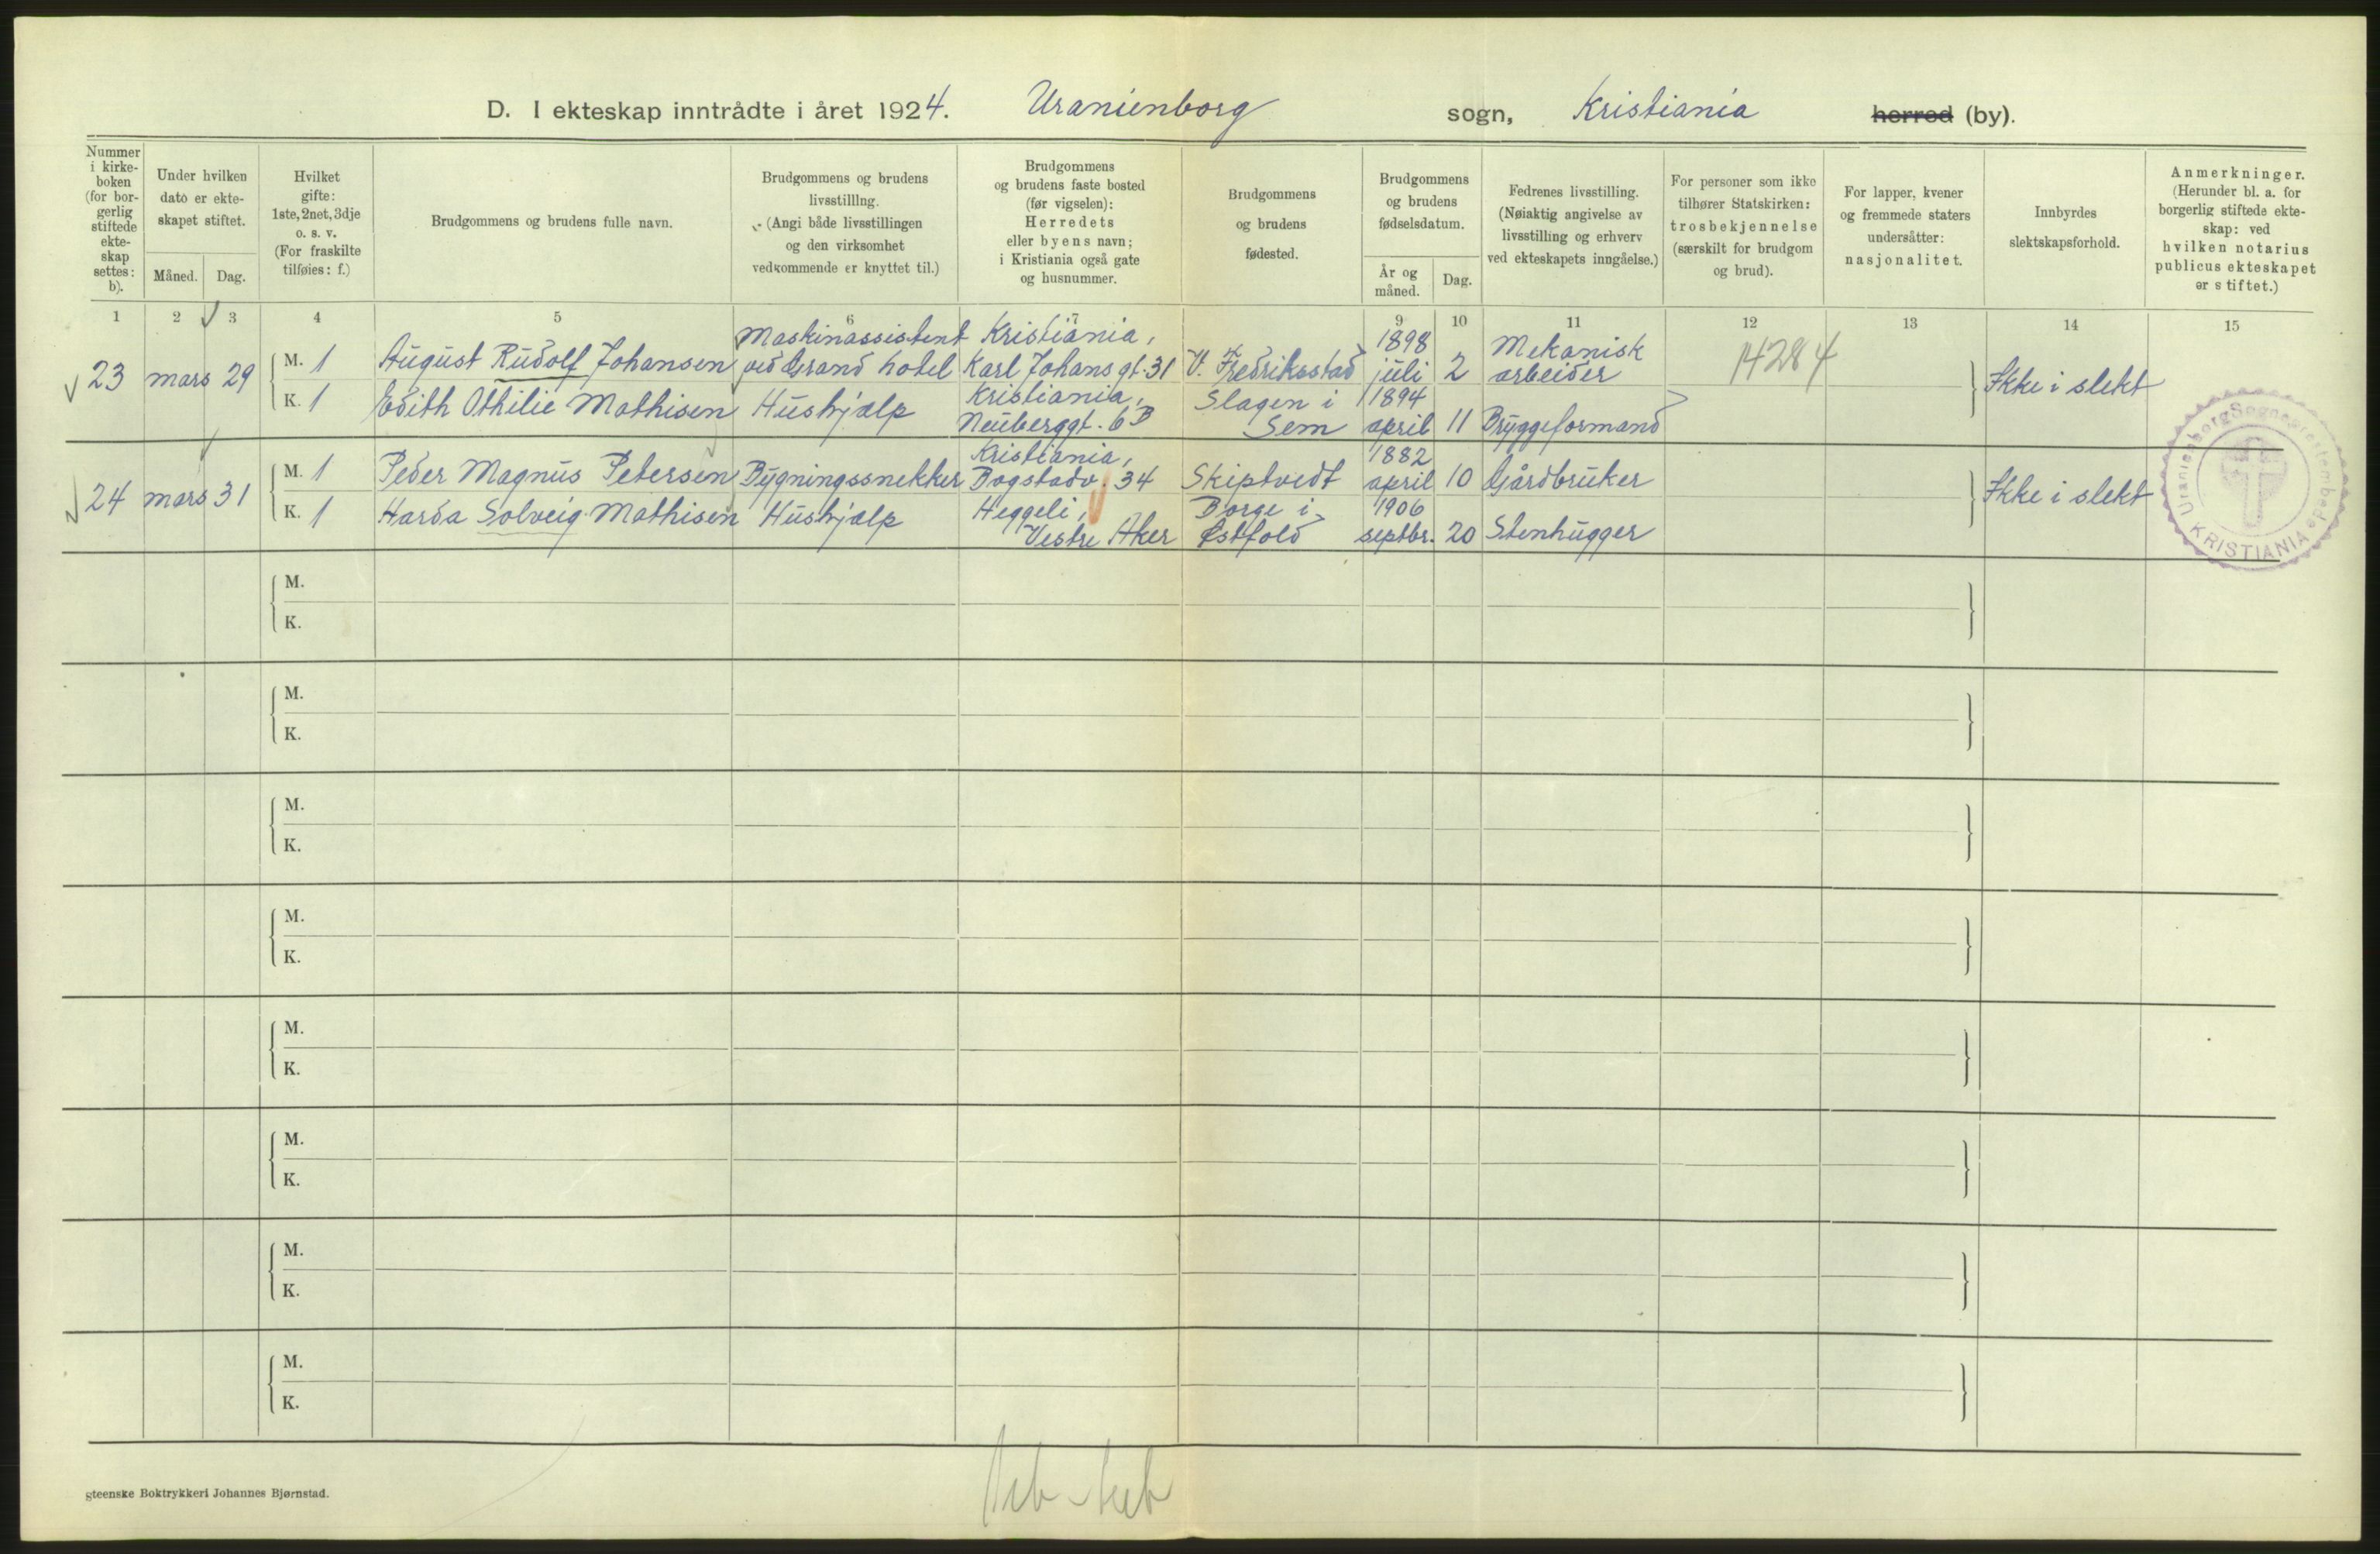 D. I ekteskap inntrådte i året 1924. Uranienborg sogn, Kristiania herred (by).
Nummer i kirke-boken (for bor-gerlig stiftede ekte-skap settes: b).
Under hvilken dato er ekte-skapet stiftet.
Måned. Dag.
Hvilket gifte: 1ste, 2net, 3dje o. s. v. (For fraskilte tilføies: f.)
Brudgommens og brudens fulle navn.
Brudgommens og brudens livsstilllng. (Angi både livsstillingen og den virksomhet vedkommende er knyttet til.)
Brudgommens og brudens faste bosted (før vigselen): Herredets eller byens navn; i Kristiania også gate og husnummer.
Brudgommens og brudens fødested.
Brudgommens og brudens fødselsdatum.
År og måned. Dag.
Fedrenes livsstilling. (Nøiaktig angivelse av livsstilling og erhverv ved ekteskapets inngåelse.)
For personer som ikke tilhører Statskirken: trosbekjennelse (særskilt for brudgom og brud).
For lapper, kvener og fremmede staters undersåtter: nasjonalitet.
Innbyrdes slektskapsforhold.
Anmerkninger. (Herunder bl. a. for borgerlig stiftede ekte-skap: ved hvilken notarius publicus ekteskapet er stiftet.)
1 2 3 4 5 6 7 9 10 11 12 13 14 15
23 mars 29 M. 1 August Rudolf Johansen Maskinassistent ved Grand hotel Kristiania, Karl Johans gt. 31 V. Fredriksstad 1898 juli 2 Mekanisk arbeider 14284 Ikke i slekt
K. 1 Edith Othilie Mathisen Hushjælp Kristiania, Neuberggt. 6B Slagen i Sem 1894 april 11 Bryggeformand
24 mars 31 M. 1 Peder Magnus Petersen Bygningssnekker Kristiania, Bogstadv. 34 Skiptvedt 1882 april 10 Gårdbruker Ikke i slekt
K. 1 Harda Solveig Mathisen Hushjælp Heggeli, Vestre Aker Borge i Østfold 1906 septbr. 20 Stenhugger
KRISTIANIA
M.
K.
M.
K.
M.
K.
M.
K.
M.
K.
M.
K.
M.
K.
M.
K.
gteenske Boktrykkeri Johannes Bjørnstad.